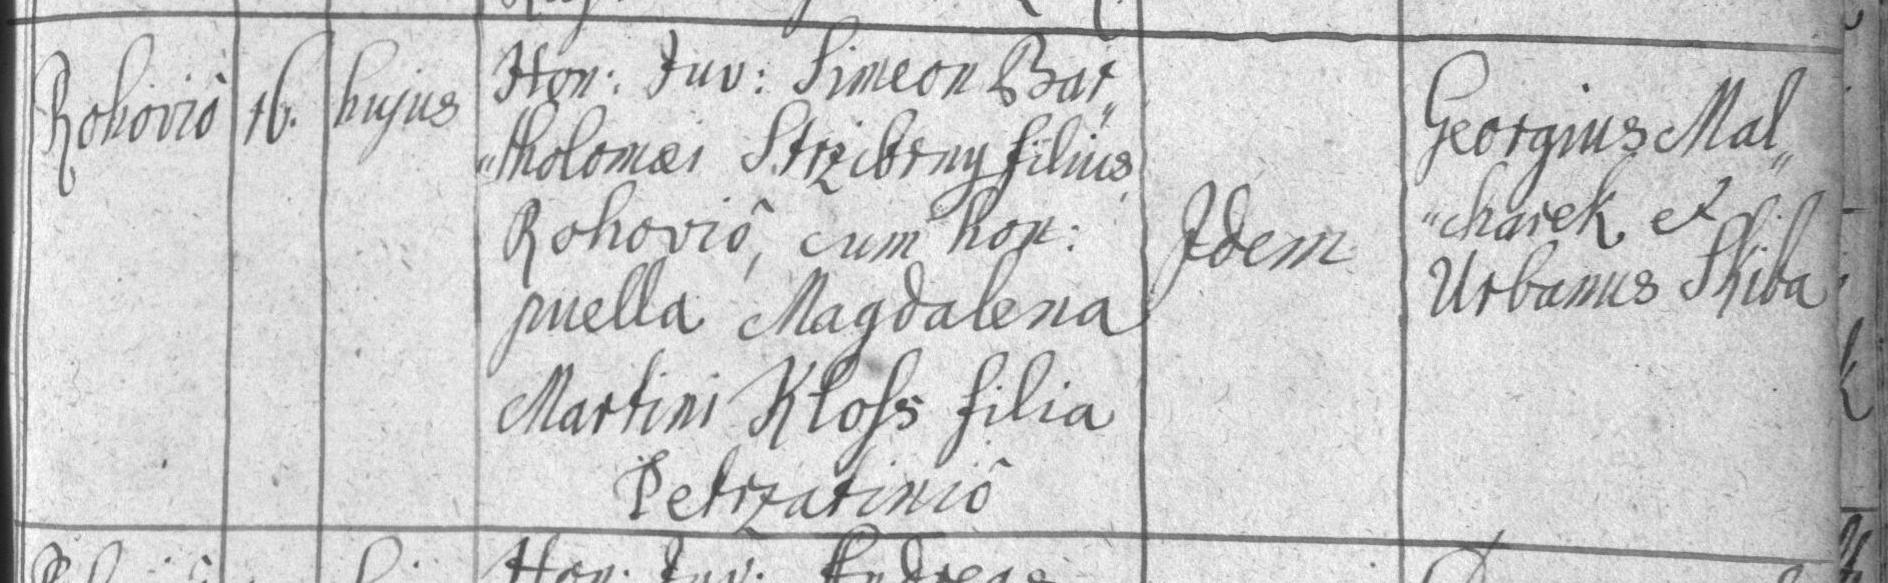 Rohoviô
16.
hujus
Hon: Juv: Simeon Bar„
„tholomæi Strzibrny filius
Rohoviô, cum hon:
puella Magdalena
Martini Kloss filia
Petrzatiniô
Idem
Georgius Mal„
„charek et
Urbanus Skiba
Hon: Juv: Andreas